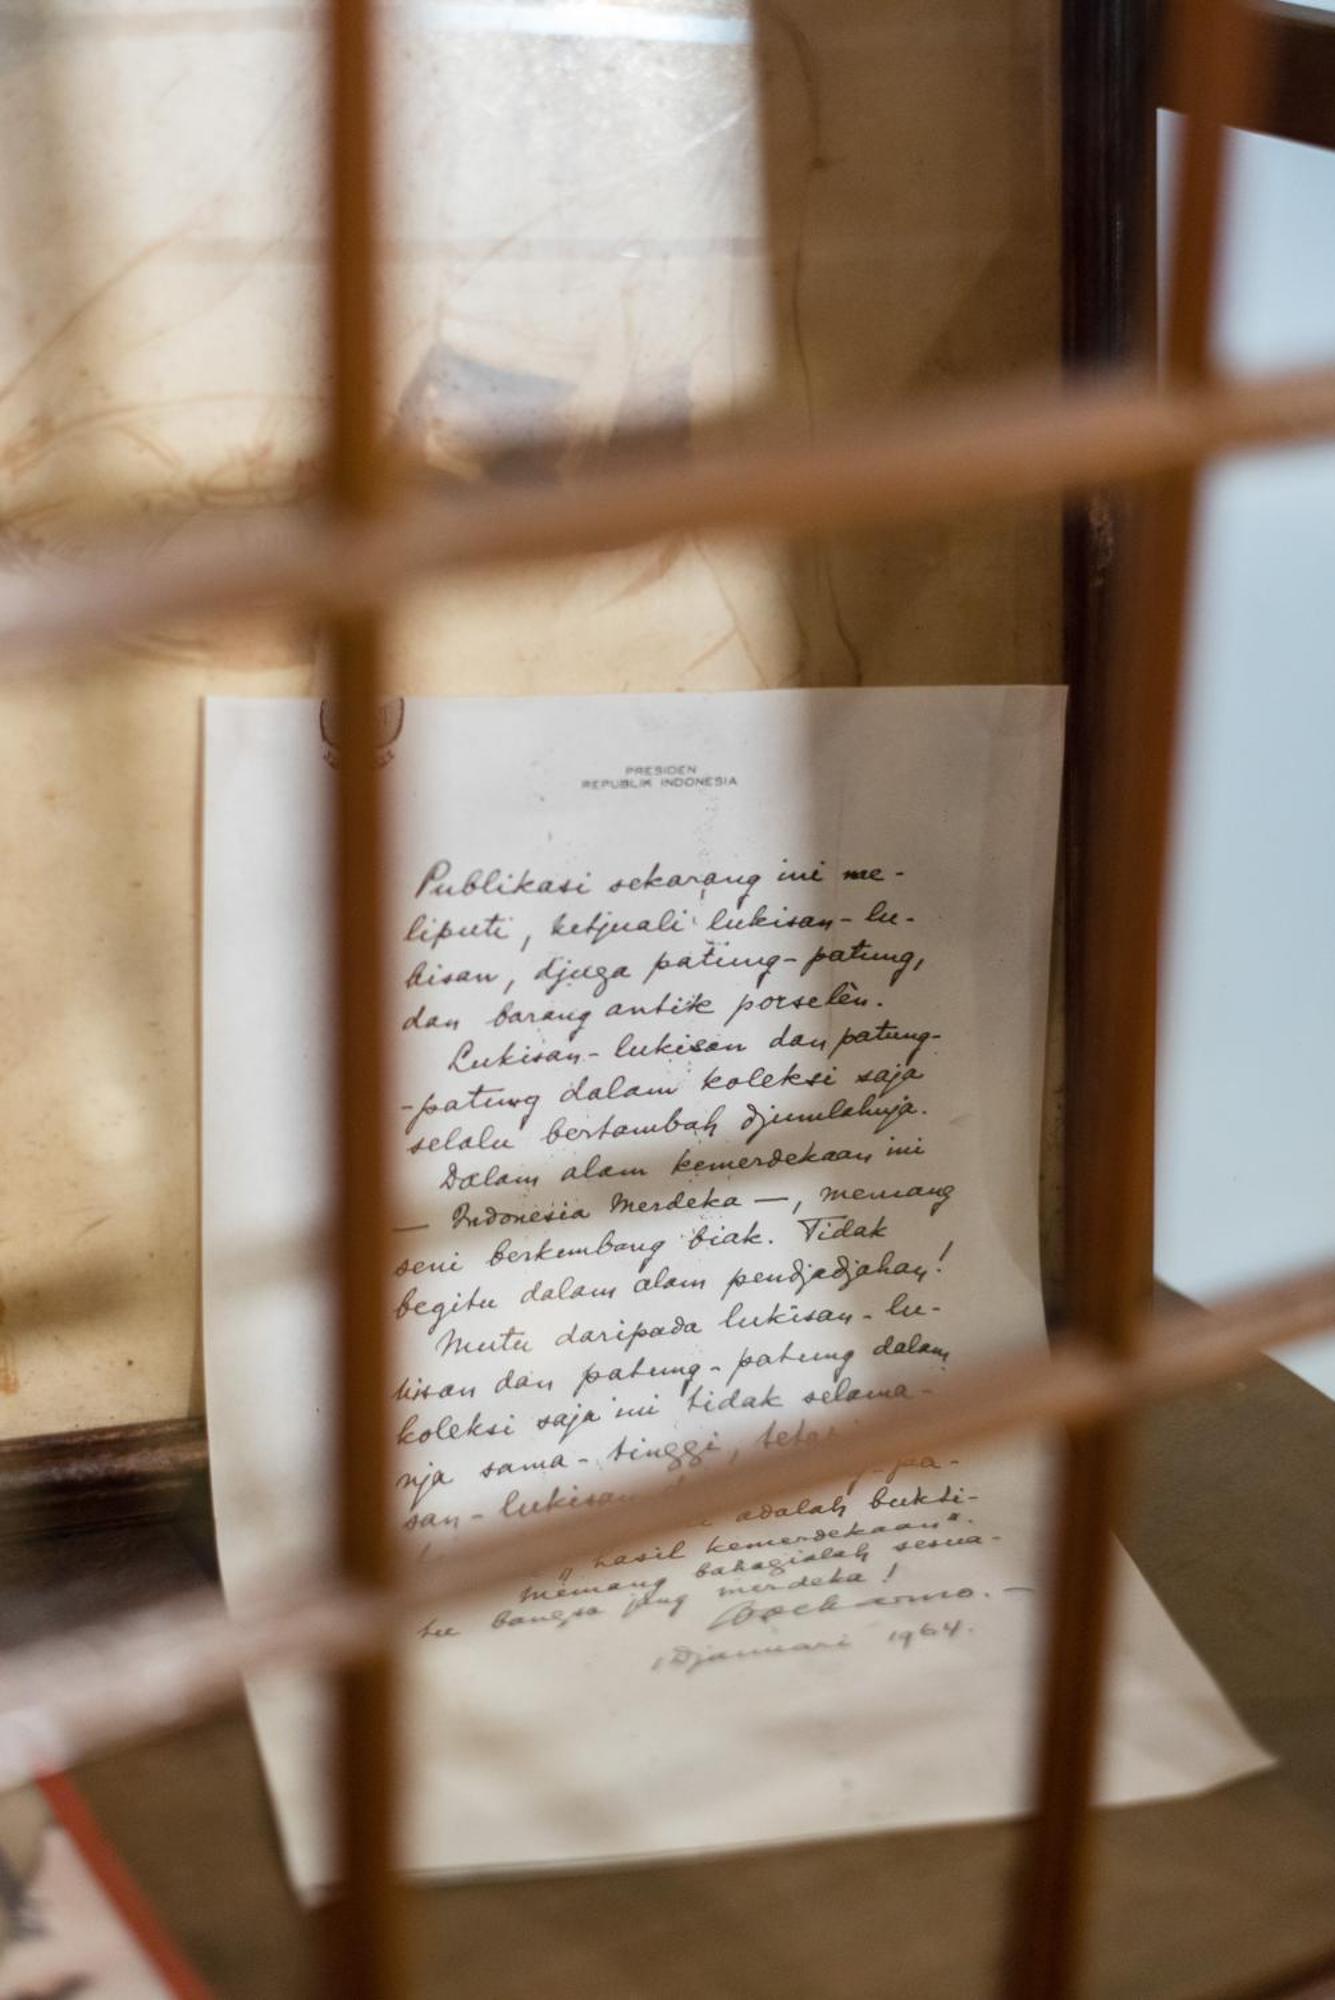 PRESIDEN
REPUBLIK INDONESIA
Publikasi sekarang ini me-
liputi, ketjuali lukisan-lu-
kisan, djuga patung-patung,
dan barang antik porselèn.
Lukisan-lukisan dan patung-
-patung dalam koleksi saja
selalu bertambah djumlahnja.
Dalam alam kemerdekaan ini
— Indonesia Merdeka —, memang
seni berkembang biak. Tidak
begitu dalam alam pendjadjahan!
Mutu daripada lukisan-lu-
kisan dan patung-patung dalam
koleksi saja ini tidak selama-
nja sama-tinggi,
san-lukisan
adalah bukti-
"hasil kemerdekaan".
Memang bahagialah sesua-
tu bangsa jang merdeka!
Soekarno.
1 Djanuari 1964.